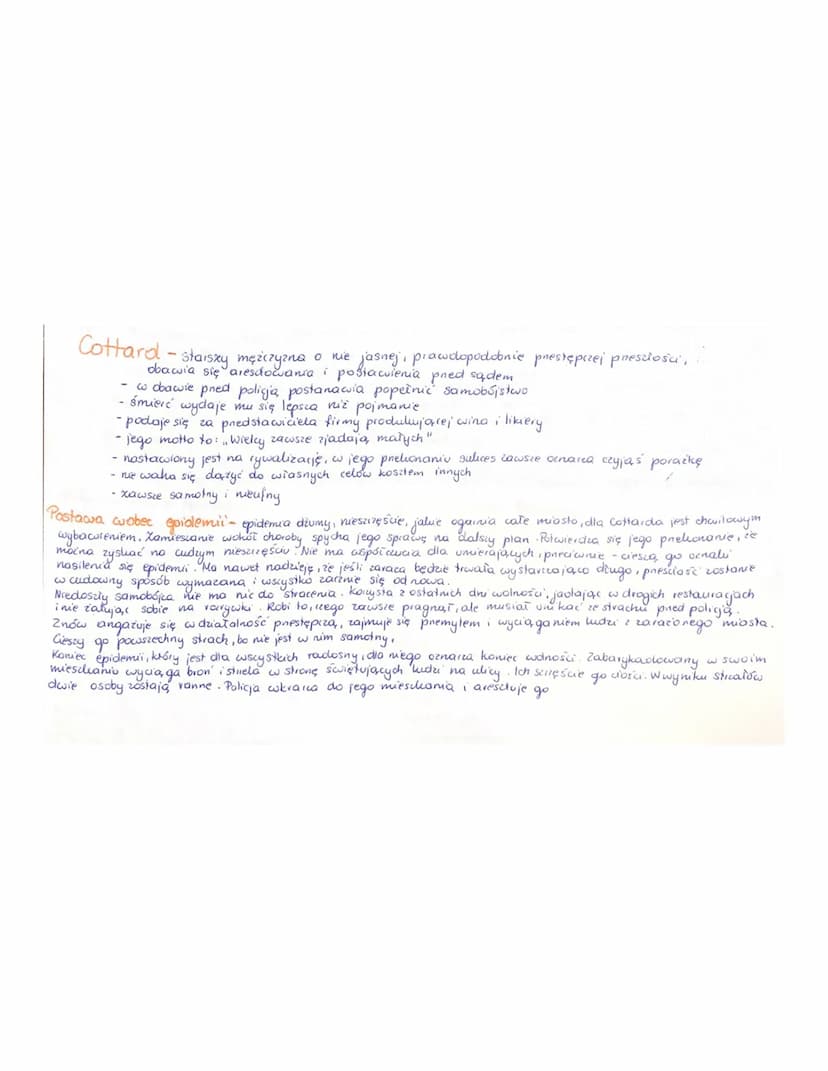 Cottard - starszy mężczyzna o nie jasnej, prawdopodobnie przestępczej przeszłości,
obawia się aresztowania i postawienia przed sądem
- w obawie przed policją postanawia popełnić samobójstwo
- śmierć wydaje mu się lepsza niż pojmanie
- podaje się za przedstawiciela firmy produkującej wina i likiery
- jego motto to: „Wielcy zawsze zjadają małych"
- nastawiony jest na rywalizację, w jego przekonaniu sukces zawsze oznacza czyjąś porażkę
- nie waha się dążyć do własnych celów kosztem innych
- zawsze samotny i nieufny
Postawa wobec epidemii - epidemia dżumy, nieszczęście, jakie ogarnia całe miasto, dla Cottarda jest chwilowym
wybawieniem. Zamieszanie wokół choroby spycha jego sprawę na dalszy plan. Potwierdza się jego przekonanie, że
można zyskać na cudzym nieszczęściu. Nie ma współczucia dla umierających, przeciwnie - cieszą go oznaki
nasilenia się epidemii. Ma nawet nadzieję, że jeśli zaraza będzie trwała wystarczająco długo, przeszłość zostanie
w cudowny sposób wymazana i wszystko zacznie się od nowa.
Niedoszły samobójca nie ma nic do stracenia. Korzysta z ostatnich dni wolności, jadając w drogich restauracjach
i nie żałując sobie na rozrywki. Robi to, czego zawsze pragnął, ale musiał unikać ze strachu przed policją.
Znów angażuje się w działalność przestępczą, zajmuje się przemytem i wyciąganiem ludzi z zarażonego miasta.
Cieszy go powszechny strach, bo nie jest w nim samotny,
Koniec epidemii, który jest dla wszystkich radosny, dla niego oznacza koniec wolności. Zabarykadowany w swoim
mieszkaniu wyciąga broń i strzela w stronę świętujących ludzi na ulicy. Ich szczęście go złości. W wyniku strzałów
dwie osoby zostają ranne. Policja wkracza do jego mieszkania i aresztuje go